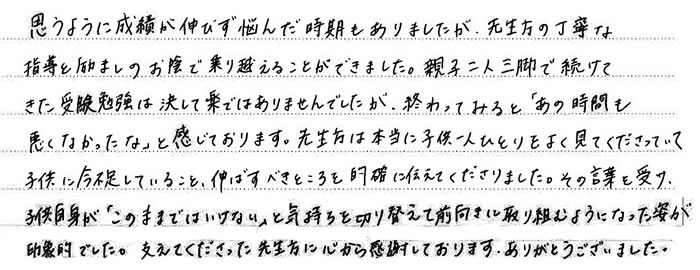 思うように成績が伸びず悩んだ時期もありましたが、先生方の丁寧な
指導と励ましのお陰で乗り越えることができました。親子二人三脚で続けて
きた受験勉強は決して楽ではありませんでしたが、終わってみると「あの時間も
悪くなかったな」と感じております。先生方は本当に子供一人ひとりをよく見てくださっていて
子供に今不足していること、伸ばすべきところを的確に伝えてくださりました。その言葉を受け、
子供自身が「このままではいけない」と気持ちを切り替えて前向きに取り組むようになった姿が
印象的でした。支えてくださった先生方に心から感謝しております。ありがとうございました。